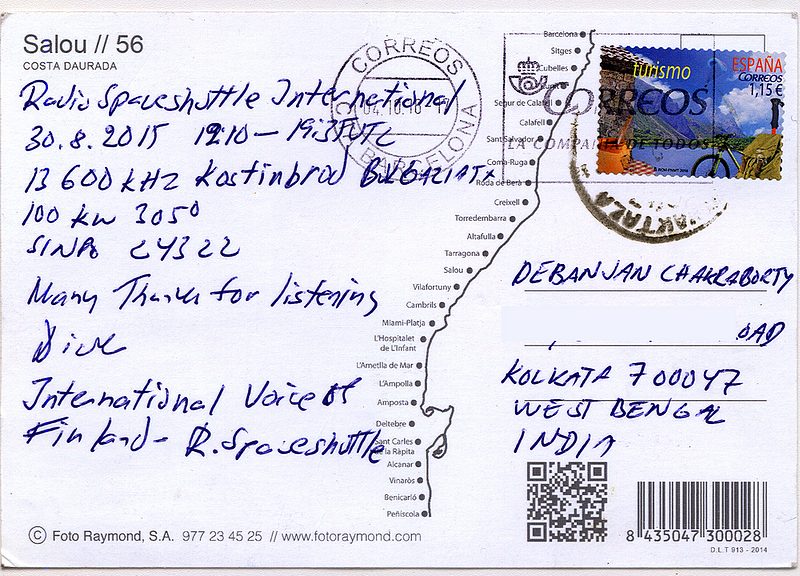 Salou // 56
COSTA DAURADA
Radio Spaceshuttle International
30.8.2015 1910 - 1935 UTC
13 600 kHz Kostinbrod BULGARIA
100 kW 305°
SINPO 24322
Many Thanks for listening
International Voice of
Finland - R. Spaceshuttle
© Foto Raymond, S.A. 977 23 45 25 // www.fotoraymond.com
CORREOS
BARCELONA
Barcelona
Sitges
Cubelles
Segur de Calafell
Calafell
Sant Salvador
Coma-Ruga
Roda de Berà
Creixell
Torredembarra
Altafulla
Tarragona
Salou
Vilafortuny
Cambrils
Miami-Platja
L'Hospitalet
de L'Infant
L'Ametlla de Mar
L'Ampolla
Amposta
Deltebre
Sant Carles
de la Ràpita
Alcanar
Vinaròs
Benicarló
Peñíscola
CORREOS
LA COMPAÑIA DE TODOS
turismo
ESPAÑA
CORREOS
1,15 €
DEBANJAN CHAKRABORTY
OAD
KOLKATA 700047
WEST BENGAL
INDIA
8 435047 300028
D.L.T 913 - 2014